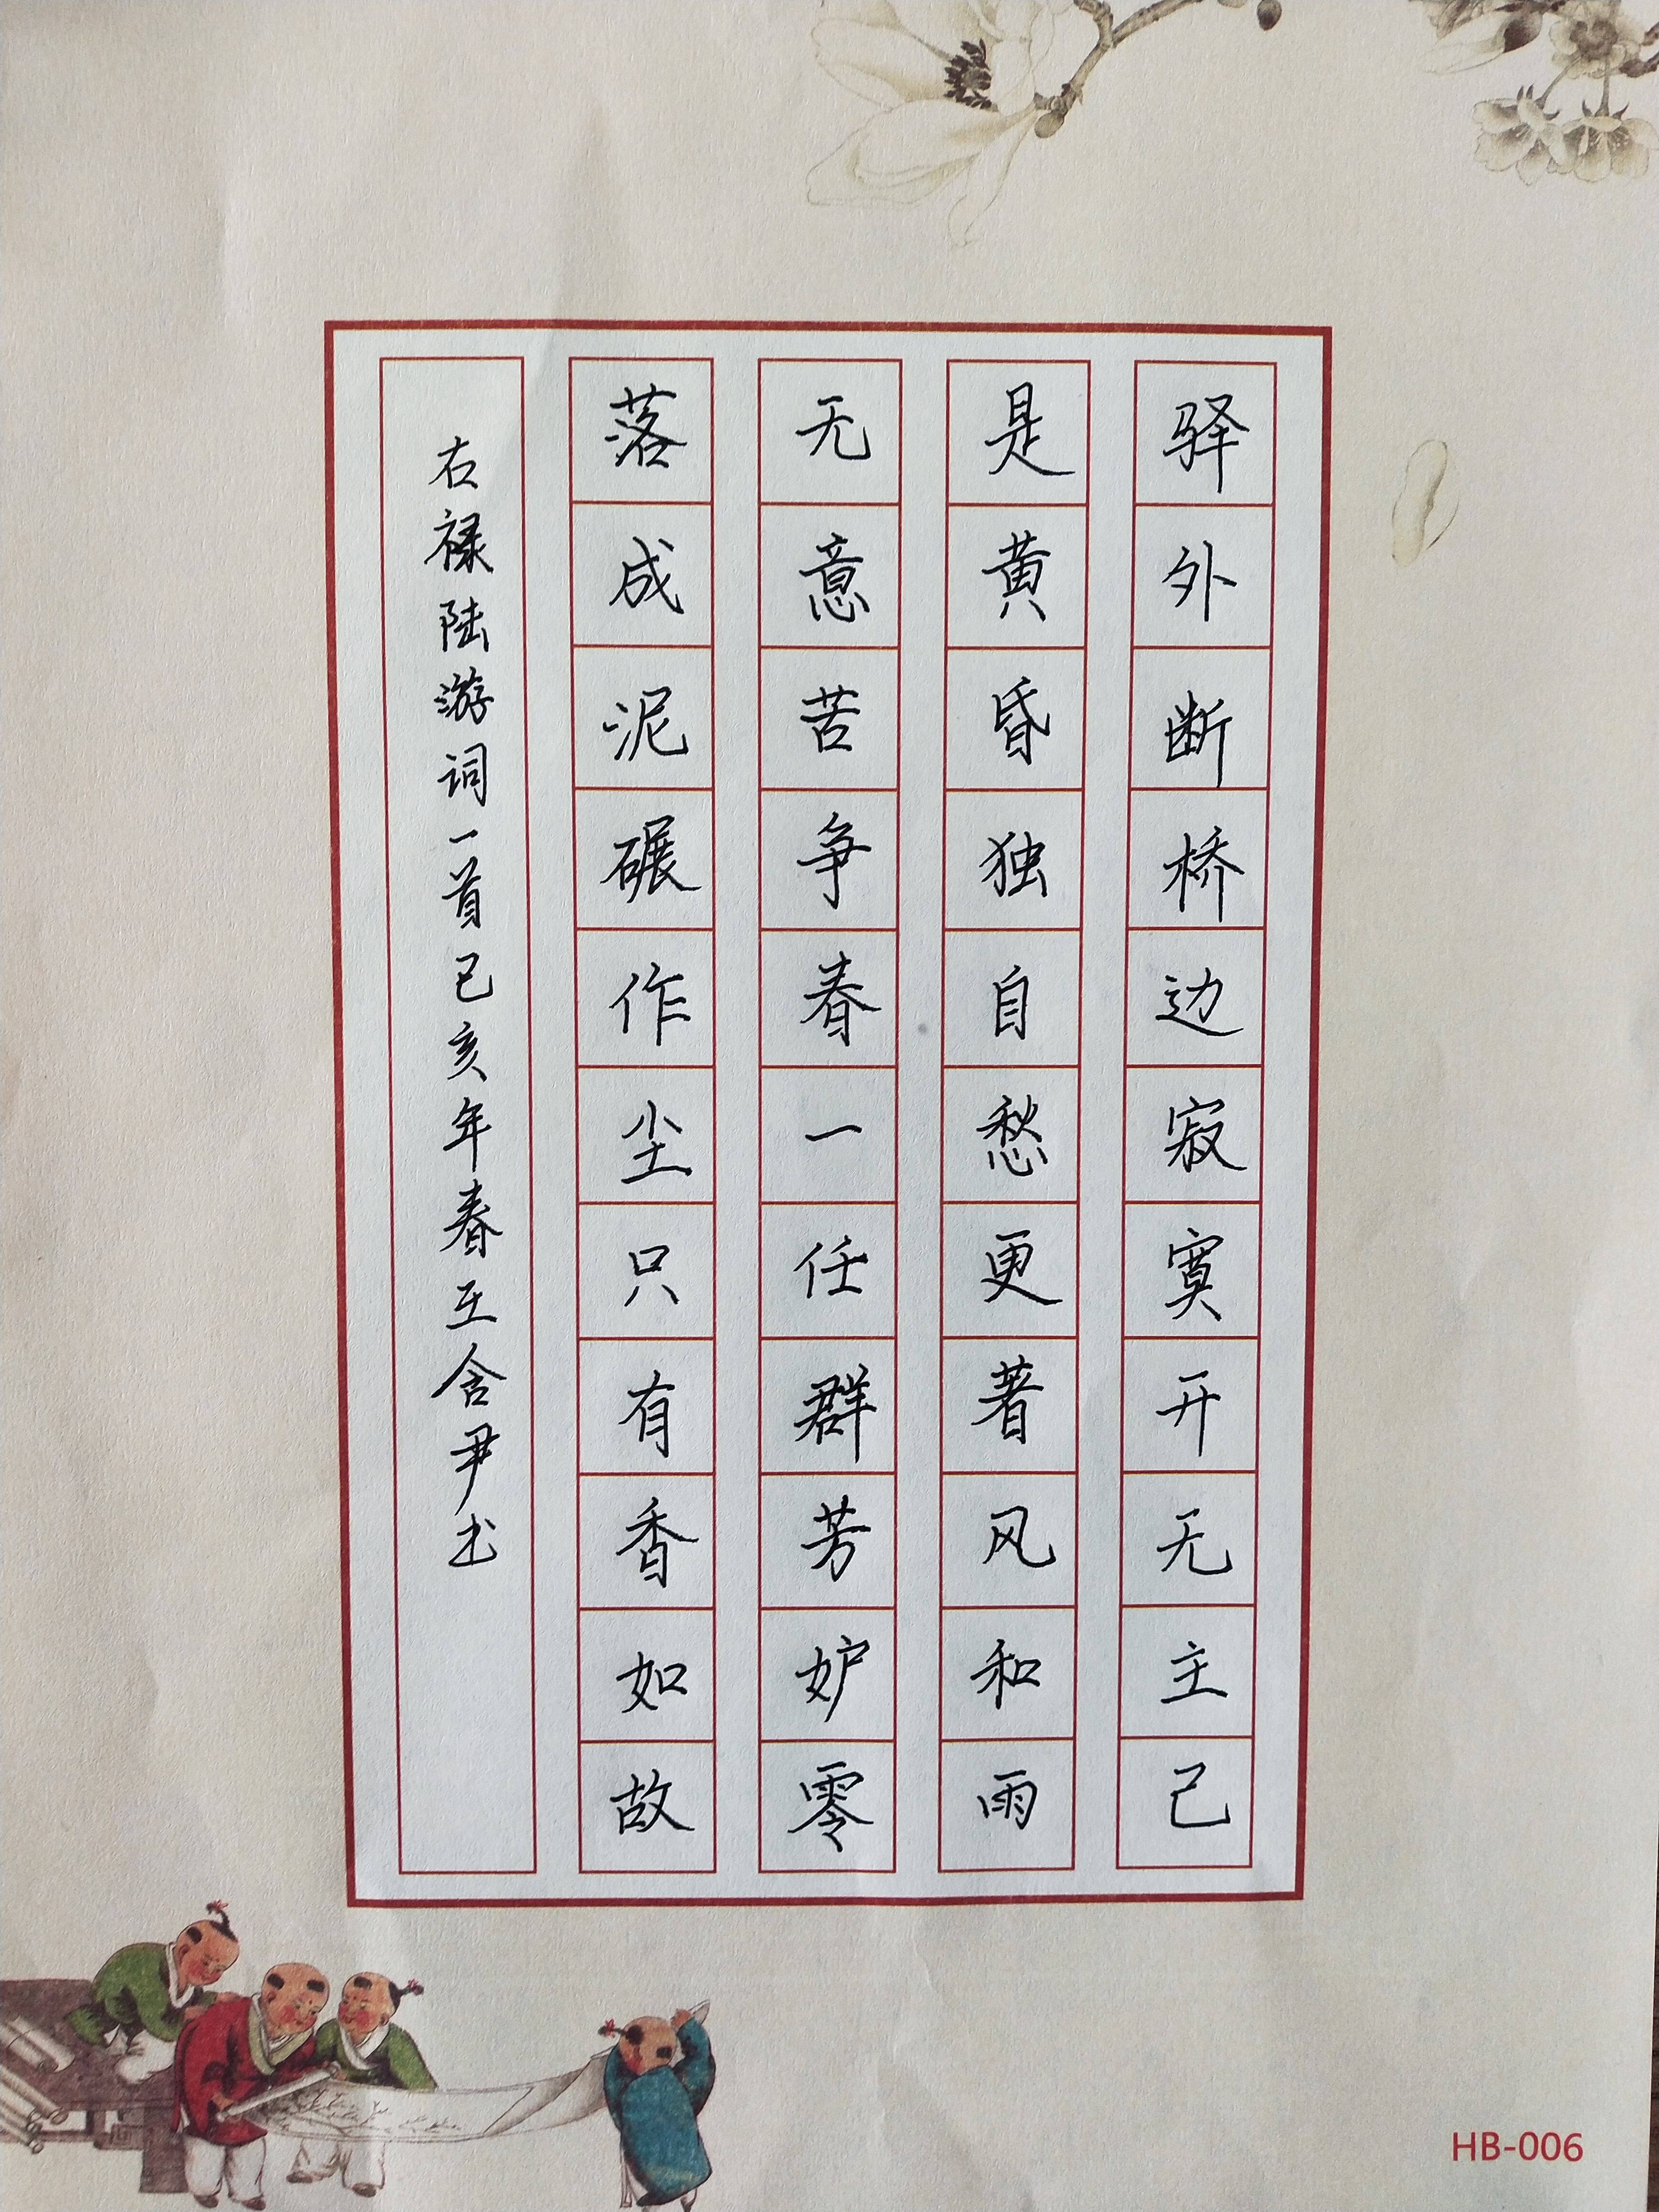 驿外断桥边寂寞开无主己
是黄昏独自愁更著风和雨
无意苦争春一任群芳妒零
落成泥碾作尘只有香如故
右禄陆游词一首己亥年春王含尹书
HB-006